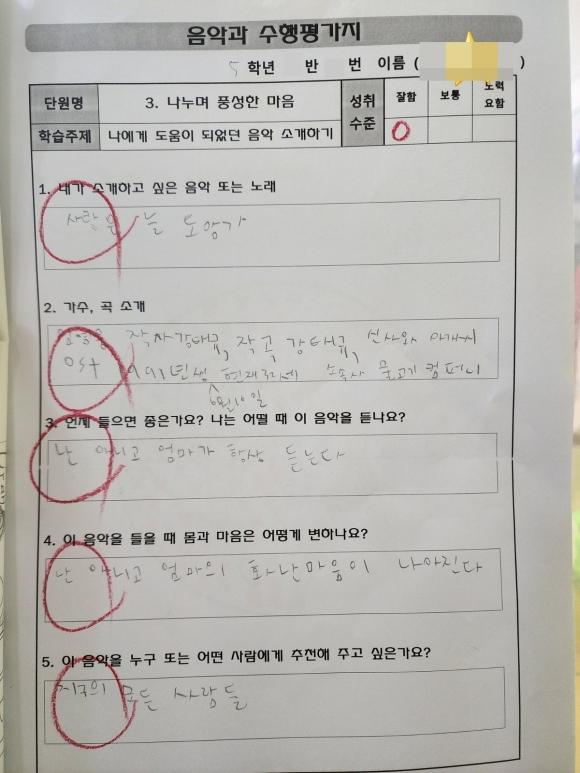 음악과 수행평가지
5 학년 반 번 이름 ( )
단원명 3. 나누며 풍성한 마음 성취 수준 잘함 보통 노력 요함
학습주제 나에게 도움이 되었던 음악 소개하기
1. 내가 소개하고 싶은 음악 또는 노래
사랑은 늘 도망가
2. 가수, 곡 소개
임영웅 작사강태규, 작곡 강태규, 신사와 아가씨
OST 1991년생 현재 소속사 물고기 컴퍼니
6월 16일
3. 언제 들으면 좋은가요? 나는 어떨 때 이 음악을 듣나요?
난 아니고 엄마가 항상 듣는다
4. 이 음악을 들을 때 몸과 마음은 어떻게 변하나요?
난 아니고 엄마의 화난마음이 나아진다
5. 이 음악을 누구 또는 어떤 사람에게 추천해 주고 싶은가요?
지구의 모든 사람들